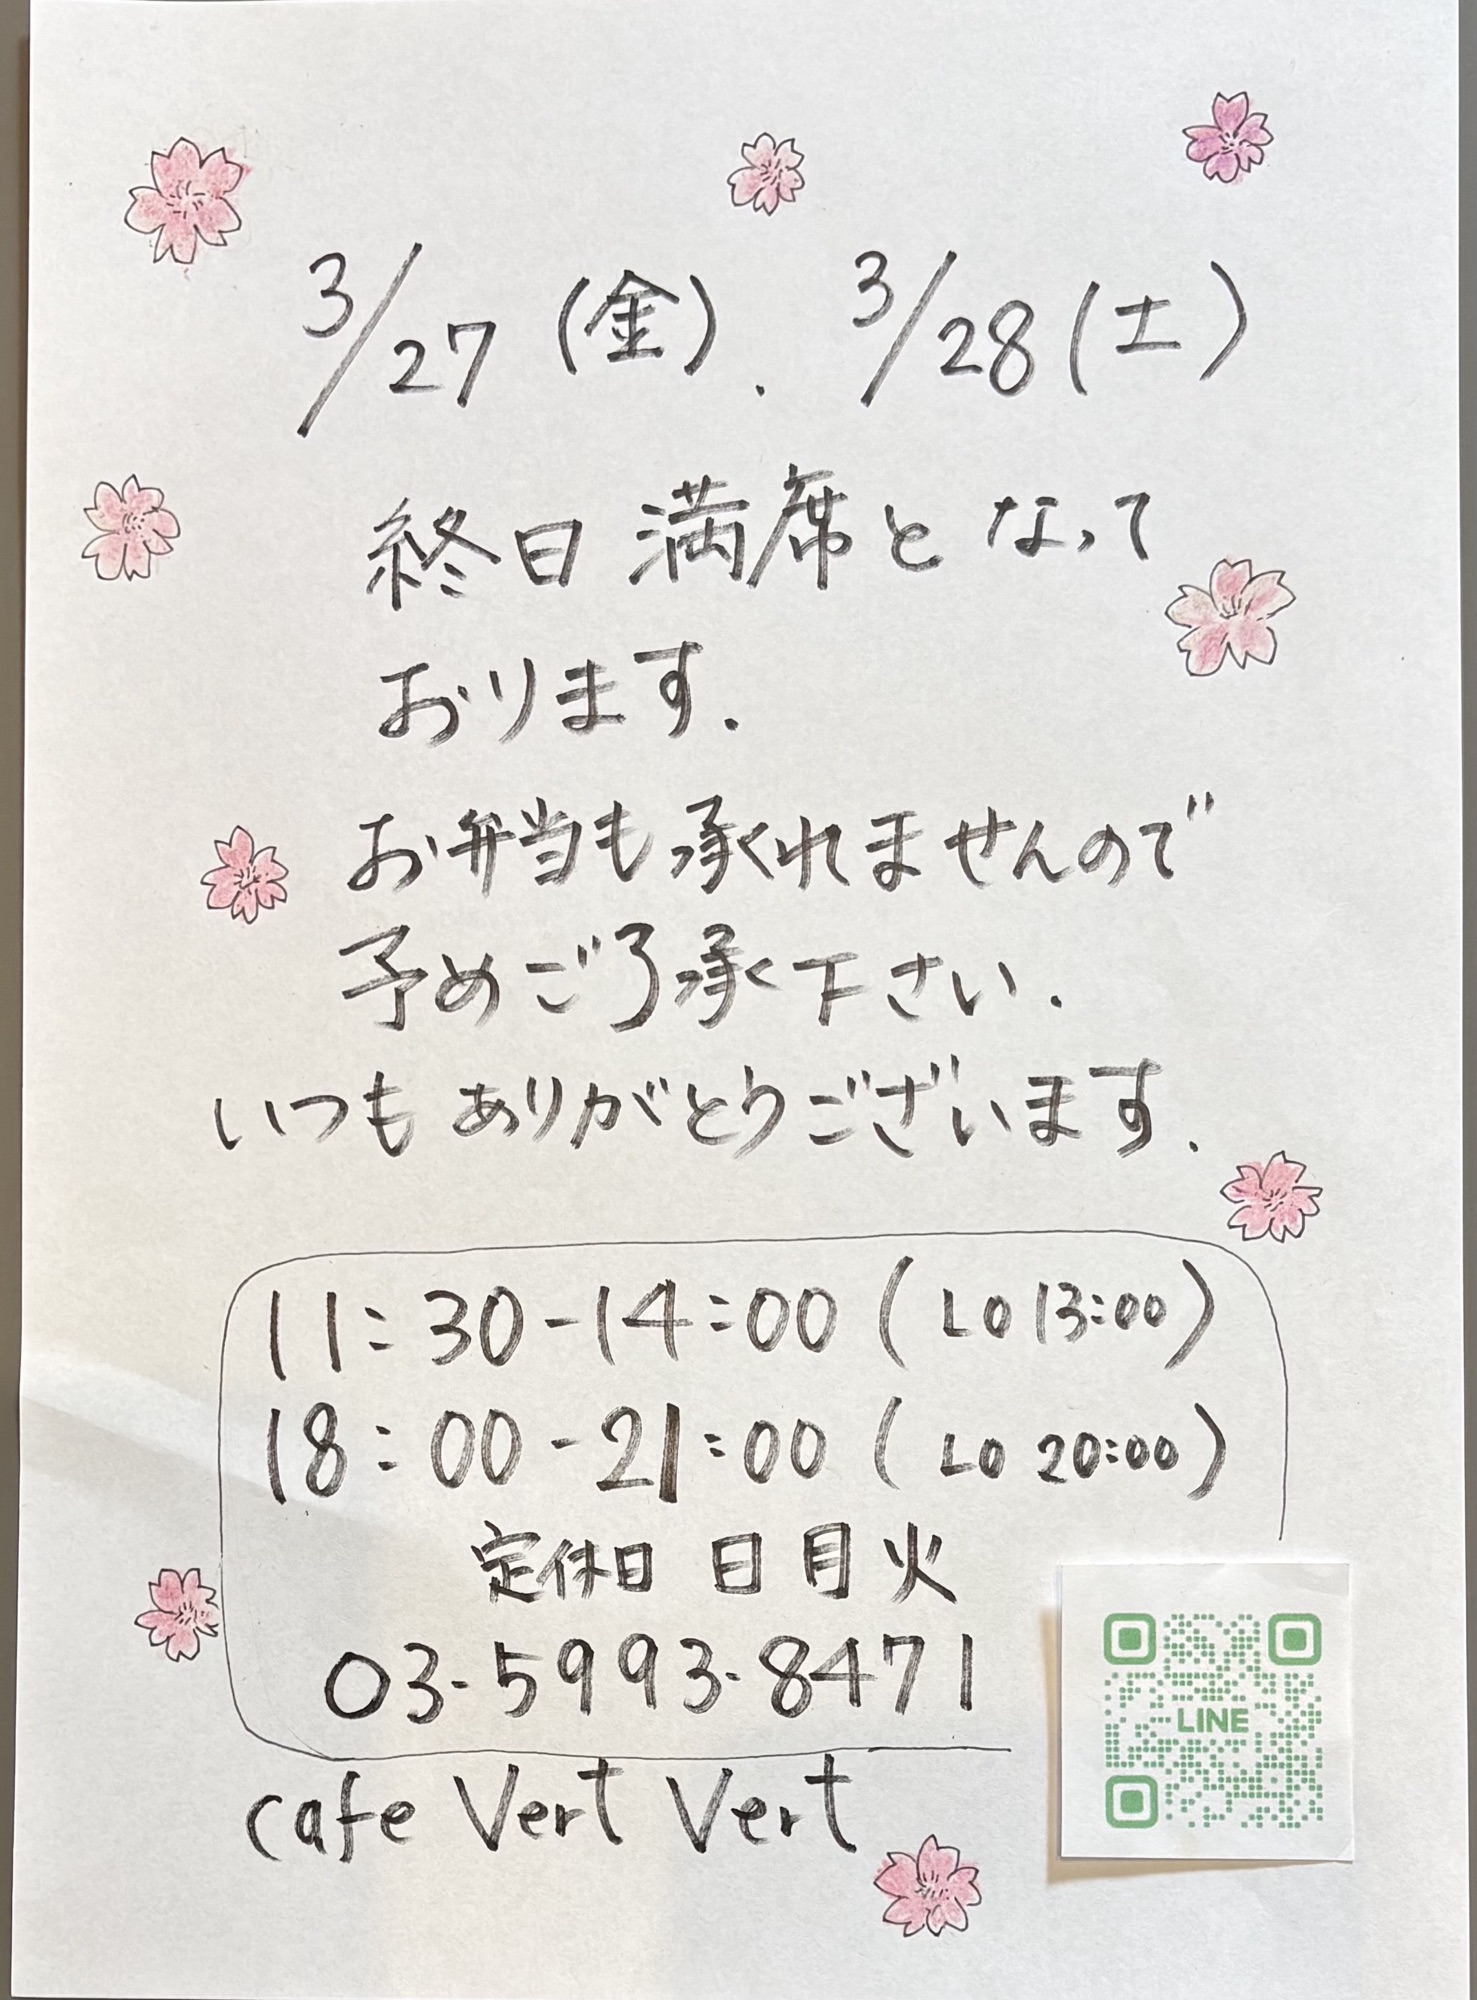 3/27(金)、3/28(土)
終日 満席となって
おります.
お弁当も承くれませんので
予めご了承く下さい.
いつもありがとうございます.
11:30-14:00(LO 13:00)
18:00-21:00(LO 20:00)
定休日 日月火
03-5993-8471
LINE
cafe Vert Vert